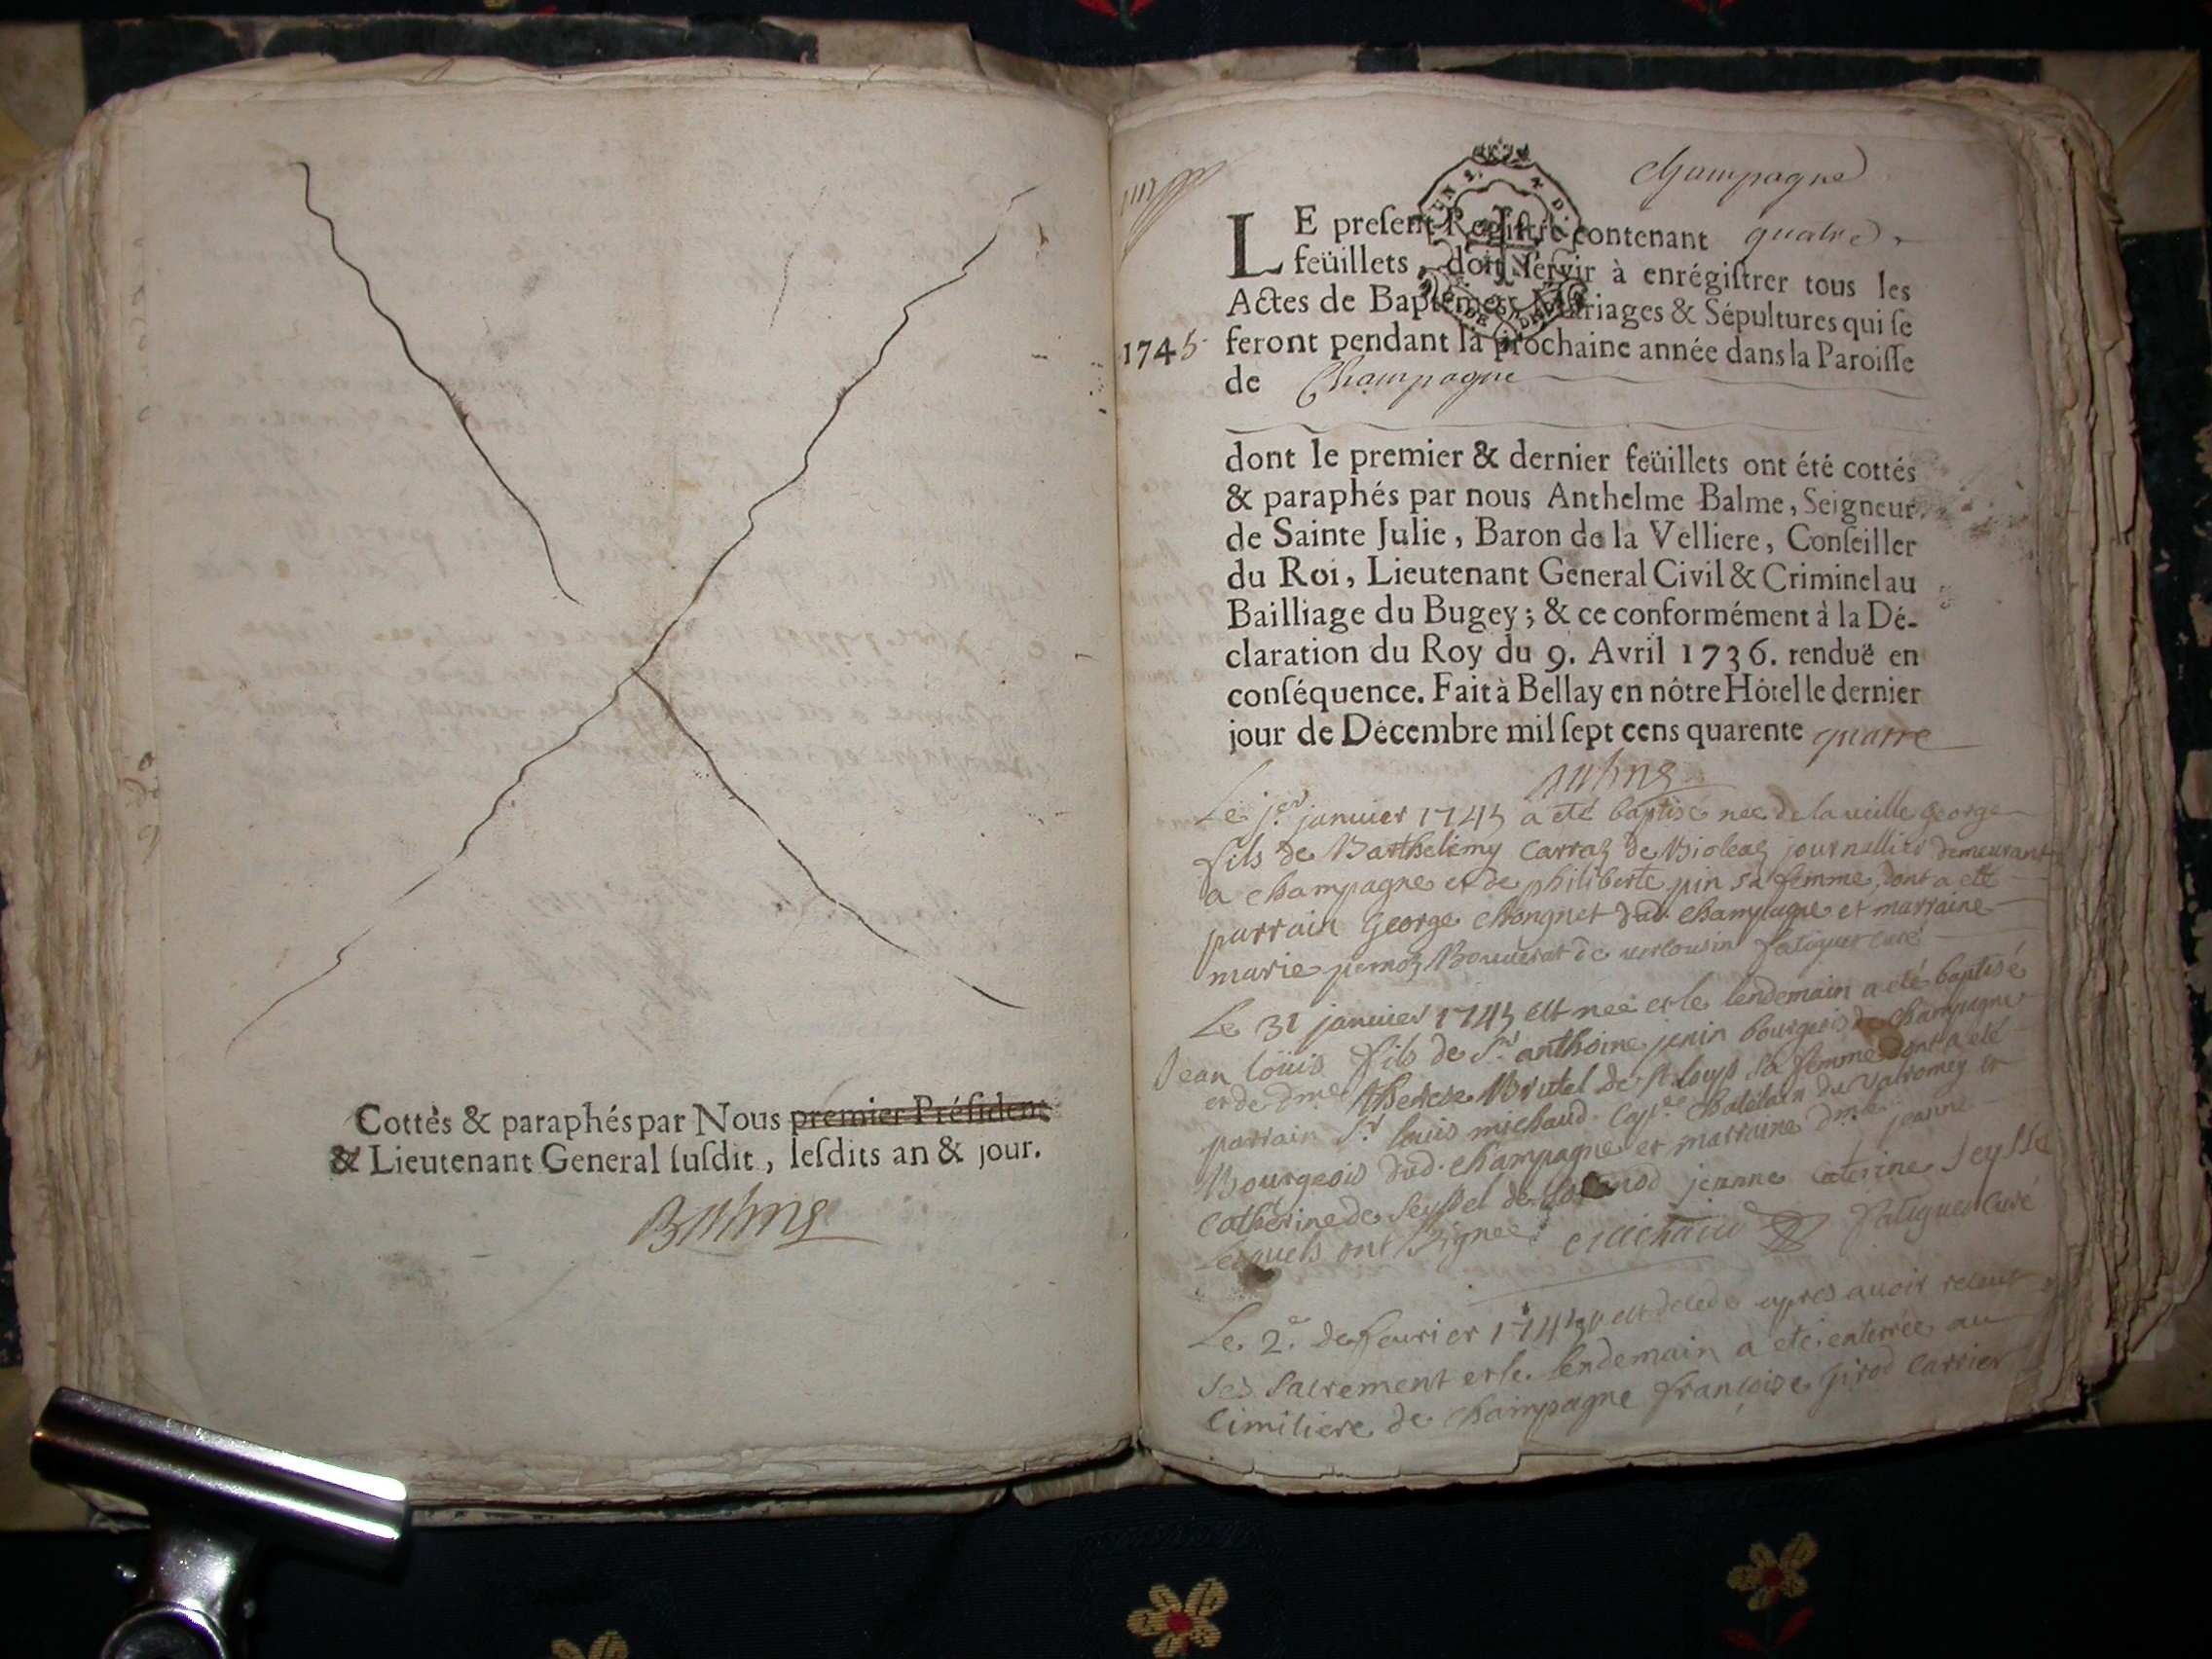 Cottés & paraphés par Nous premier Président
& Lieutenant General susdit, lesdits an & jour.
Balme
Champagne
LE present Registre contenant quatre
feüillets, doit servir à enrégistrer tous les
Actes de Baptêmes, Mariages & Sépultures qui se
1745 feront pendant la prochaine année dans la Paroisse
de Champagne
dont le premier & dernier feüillets ont été cottés
& paraphés par nous Anthelme Balme, Seigneur
de Sainte Julie, Baron de la Velliere, Conseiller
du Roi, Lieutenant General Civil & Criminel au
Bailliage du Bugey; & ce conformément à la Dé-
claration du Roy du 9. Avril 1736. renduë en
conséquence. Fait à Bellay en nôtre Hôtel le dernier
jour de Décembre mil sept cens quarente quatre
Balme
Le jer janvier 1745 a eté baptisé neé de la veille George
fils de Barthelemy Carraz de Violeaz journallier demeurant
a champagne et de philiberte pin sa femme dont a eté
parrain George Chongnet dud champagne et marraine
marie pernoz Bouvérat de virlousin fatiguet curé
Le 31 janvier 1745 est neé et le lendemain a eté baptisé
Jean loüis fils de Sr anthoine jenin bourgeois de champagne
et de dme therese Brutel de St louys sa femme dont a eté
parrain Sr louis michaud Capne chatelain du valromey et
Bourgeois dud. champagne et marraine dme jeanne
catherine de Seyssel de jeanne caterine Seysse
lesquels ont signeés Michaud fatiguet curé
Le 2e de fevrier 1745 est decedé apres avoir receut
ses sacrement et le lendemain a eté enterrée au
cimitiere de champagne françoise girod carrier